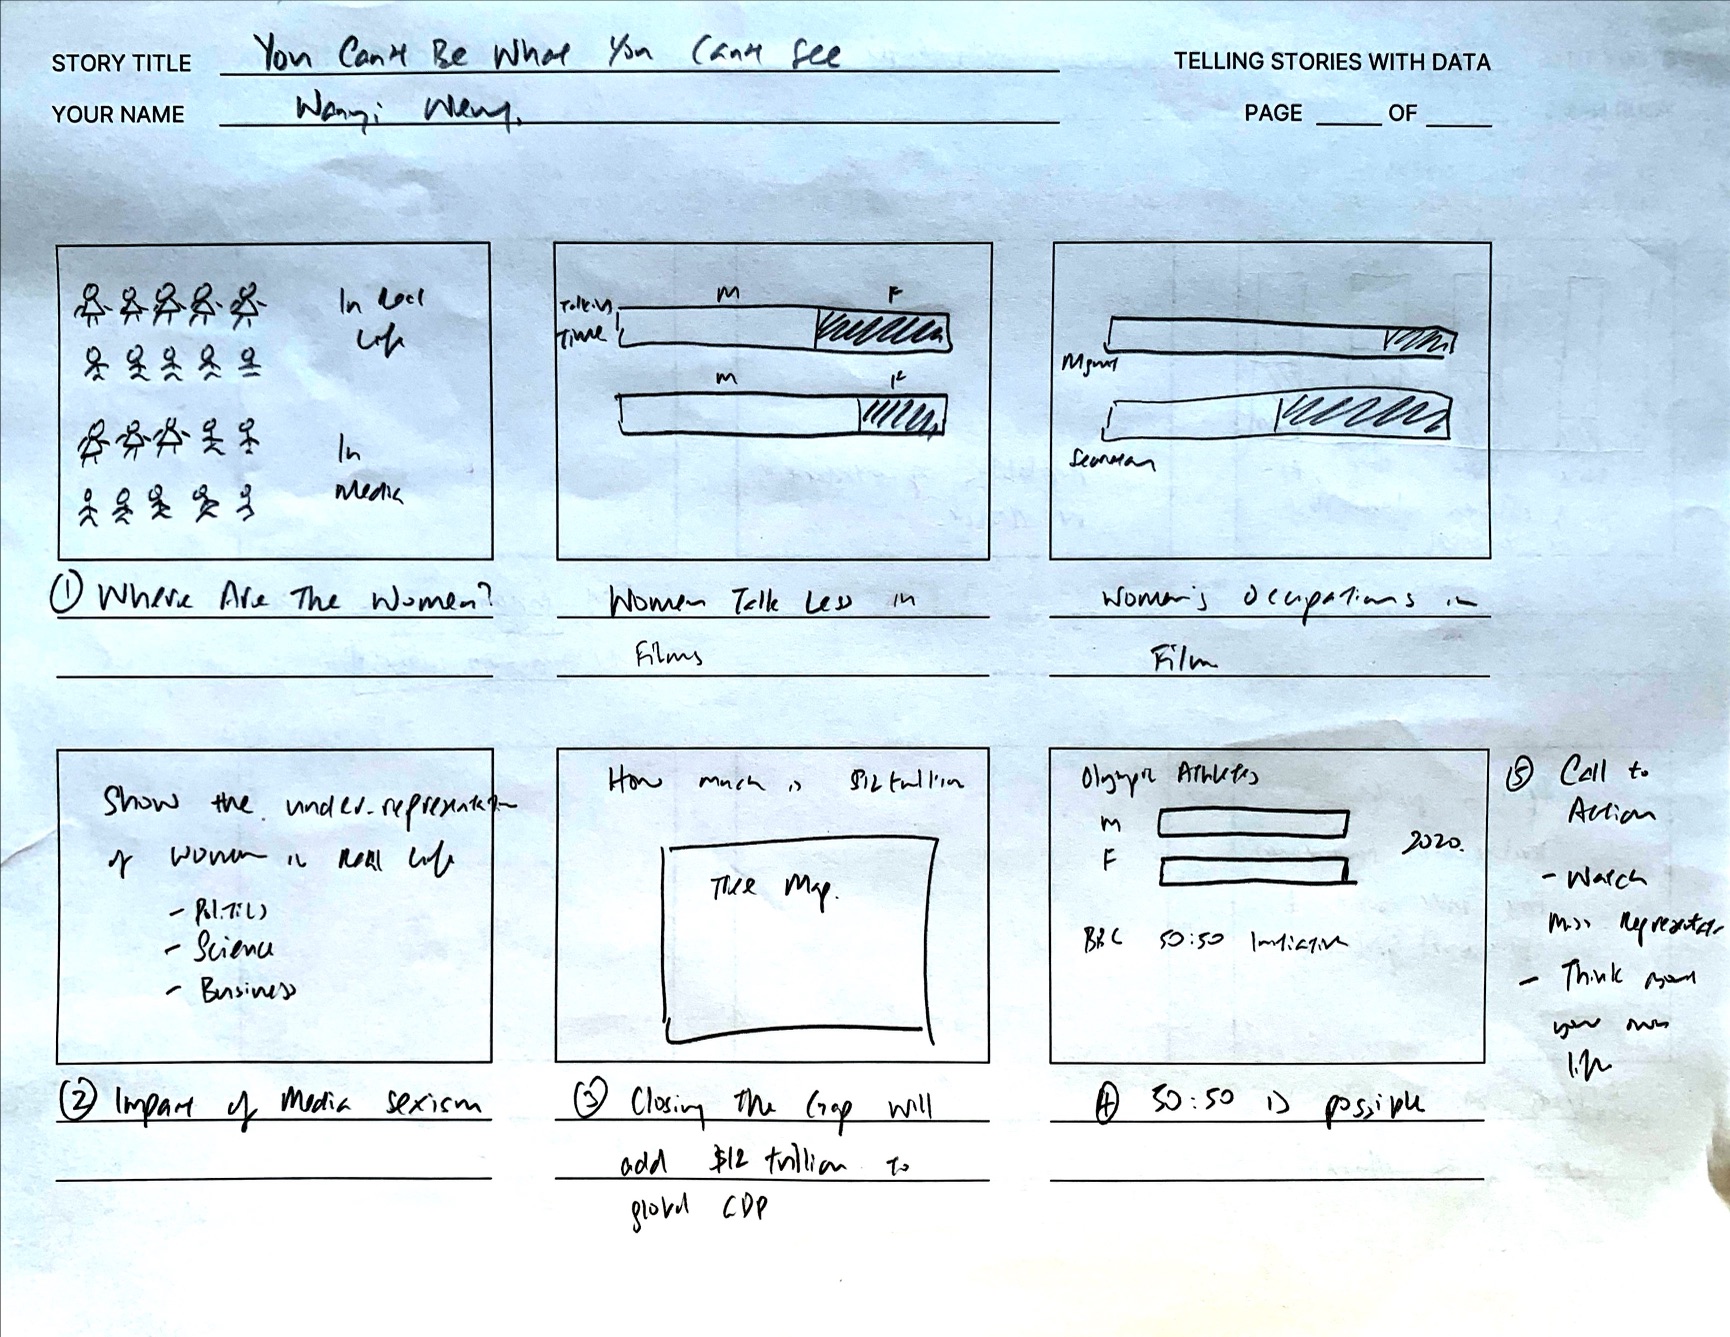 STORY TITLE You Can't Be What You Can't See
TELLING STORIES WITH DATA
YOUR NAME
PAGE ____ OF ____
In Real
Life
In
Media
① Where Are The Women?
Talking
Time
M F
M F
Women Talk Less in
Films
Mgmt
Women's Occupations in
Film
Show the under-representation
of women in Real Life
- Politics
- Science
- Business
② Impact of Media Sexism
How much is $12 trillion
Tree Map.
③ Closing the Gap will
add $12 trillion to
global GDP
Olympic Athletes
M
F
2020.
BBC 50:50 Initiative
④ 50:50 is possible
⑤ Call to
Action
- Watch
Miss Representation
- Think about
your own
life